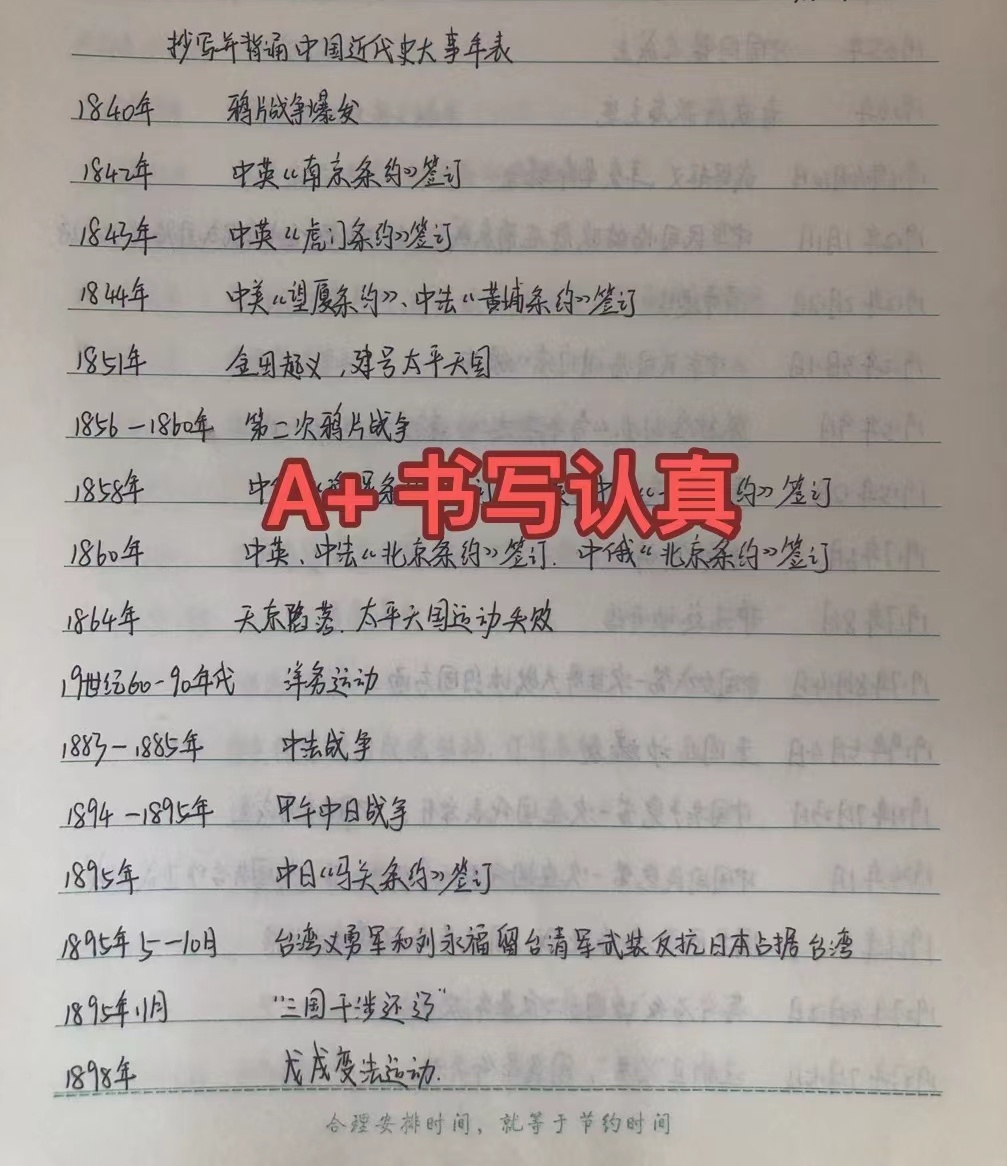 抄写并背诵中国近代史大事年表
1840年 鸦片战争爆发
1842年 中英《南京条约》签订
1843年 中英《虎门条约》签订
1844年 中美《望厦条约》、中法《黄埔条约》签订
1851年 金田起义,建号太平天国
1856-1860年 第二次鸦片战争
A+ 书写认真
1858年 中 条 约》签订
1860年 中英、中法《北京条约》签订.中俄《北京条约》签订
1864年 天京陷落.太平天国运动失败
19世纪60-90年代 洋务运动
1883-1885年 中法战争
1894-1895年 甲午中日战争
1895年 中日《马关条约》签订
1895年5-10月 台湾义勇军和刘永福留台清军武装反抗日本占据台湾
1895年11月 “三国干涉还辽”
1898年 戊戌变法运动.
合理安排时间,就等于节约时间